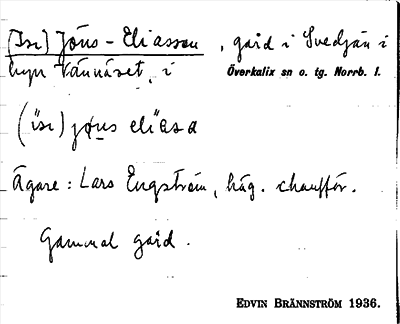 [Isi] Jöns-Eliassan, gård i Svedjan i
byn Vännäset, i Överkalix sn o. tg. Norrb. l.
(ïsi) jöns elïasa
Ägare: Lars Engström, häg. chaufför.
Gammal gård.
EDVIN BRÄNNSTRÖM 1936.